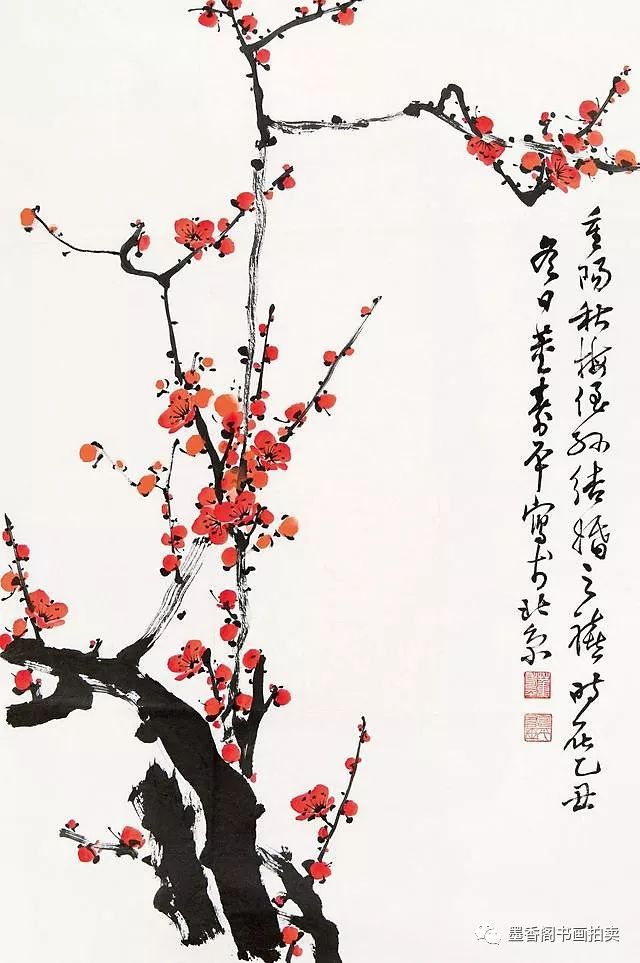 重阳秋梅侄孙结婚之禧时在乙丑
冬日董寿平写于北京
墨香阁书画拍卖